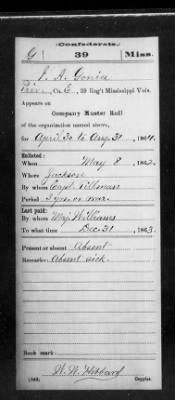 (Confederate.)
G 39 Miss.
J. A. Gonia
Priv, Co. E, 39 Reg't Mississippi Vols.
Appears on
Company Muster Roll
of the organization named above,
for April 30 to Aug. 31, 1864.
Enlisted:
When May 8, 1862.
Where Jackson
By whom Capt. Tillman
Period 3 yrs or war.
Last paid:
By whom Maj. Williams
To what time Dec. 31, 1863.
Present or absent Absent
Remarks: Absent sick.
Book mark:
W. W. Hibbard
(642) Copyist.